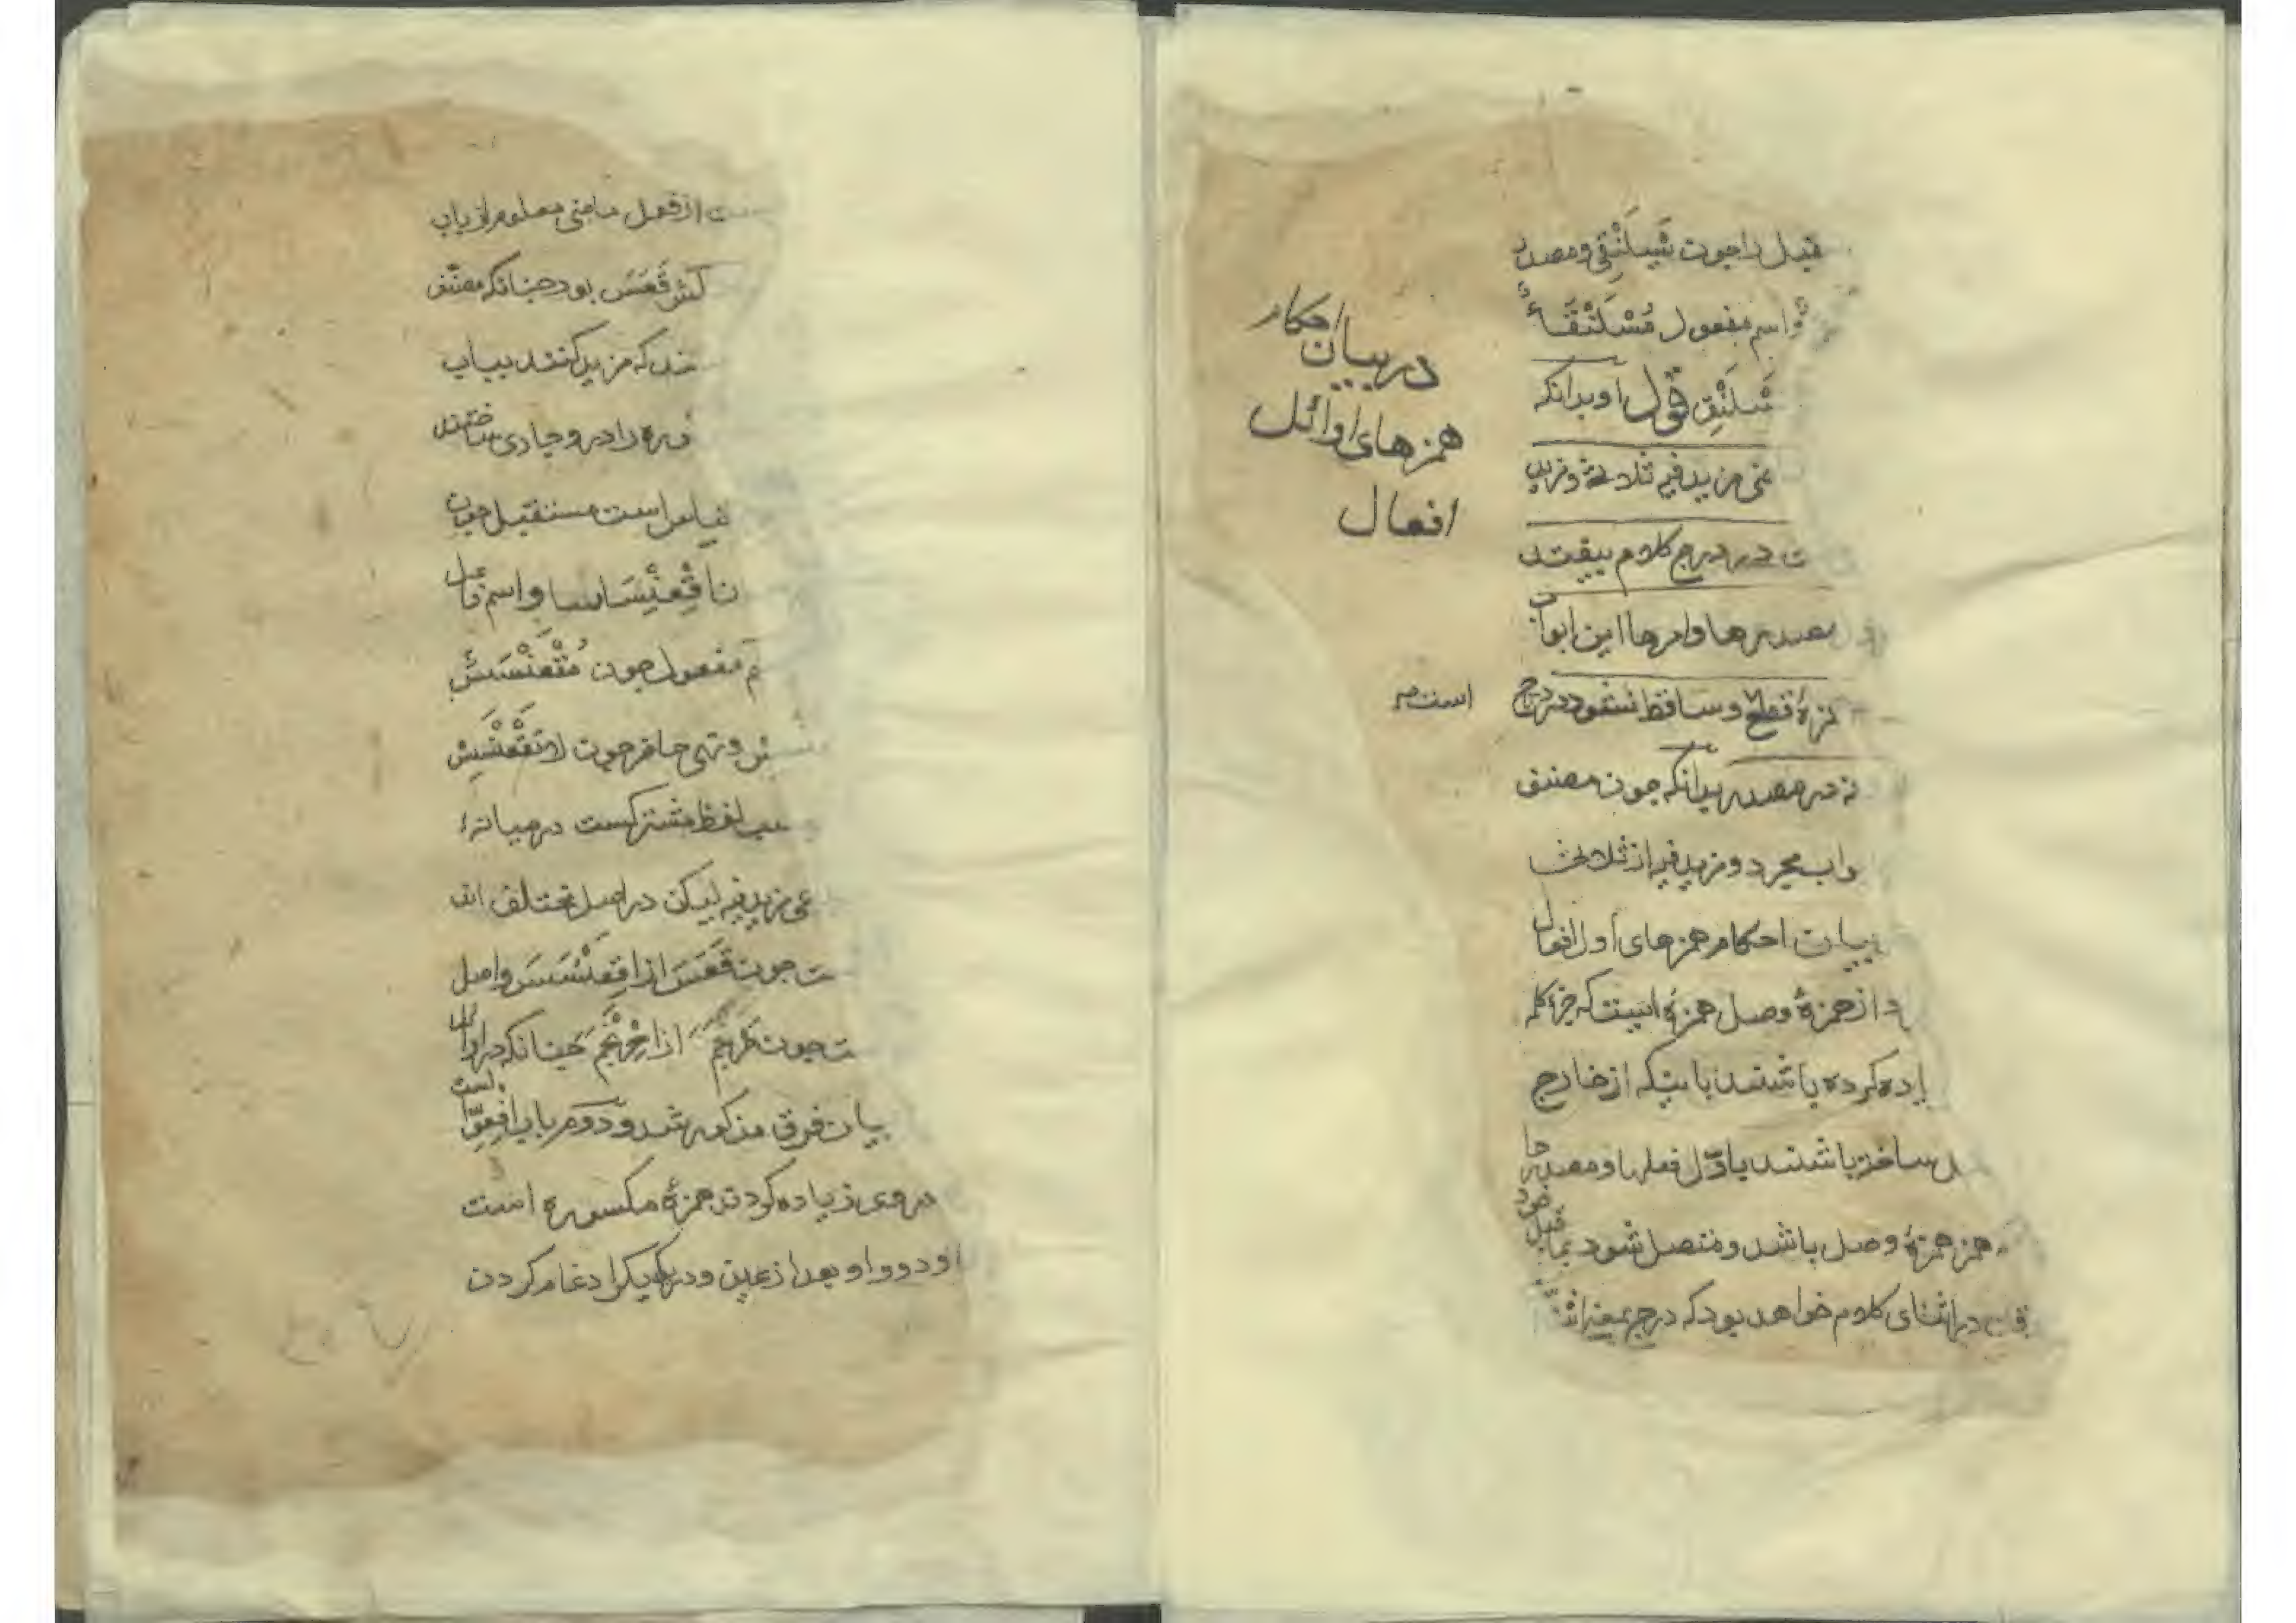 قبل را چون یسلنقی ومصدر
واسم مفعول مُسْلَنْقَاءٌ
سْلَنْقِ قول او بدانکه
در بیان احکام
همزهای اوائل
افعال
ثی مزید فیه ثلاثة ومزید
ت در درج کلام بیفتد
مصدرها وامرها این ابواب
مزهٔ قطع وساقط نشود در درج
است
نه در مصدر بدانکه چون مصنف
واب مجرد ومزید فیه از ثلاثی
بیان احکام همزهای اول افعال
د از همزهٔ وصل همزهٔ است که جزء کلمه
یاده کرده باشند بلکه از خارج
ل ساخته باشند باوّل فعلها ومصدرها
همزه همزهٔ وصل باشد ومتصل شود بماقبل خود
در اثنای کلام خواهد بود که درج بمعنی
ست از فعل ماضی معلوم از باب
لش قَعَسَ بود چنانکه مصنف
ند که مزید کنند بباب
را در و جاری ساختند
قیاس است مستقبل چون
ن اقْعِنْسَاسا واسم فاعل
م مفعول چون مُقْعَنْسَسٌ
ونهی حاضر چون لاتَقْعَنْسِسْ
لفظ مشترکست در میانهٔ
عی مزید فیه لیکن در اصل مختلف اند
ت چون قَعَسَ از اِقْعَنْسَسَ واصل
ت چون حَرْجَمَ از اِحْرَنْجَمَ چنانکه در اوائل
بیان فرق مذکور شد ودوم باب افعوّال است
در وی زیاده کردن همزهٔ مکسوره است
او ودو واو بعد از عین ودر یکدیگر ادغام کردن